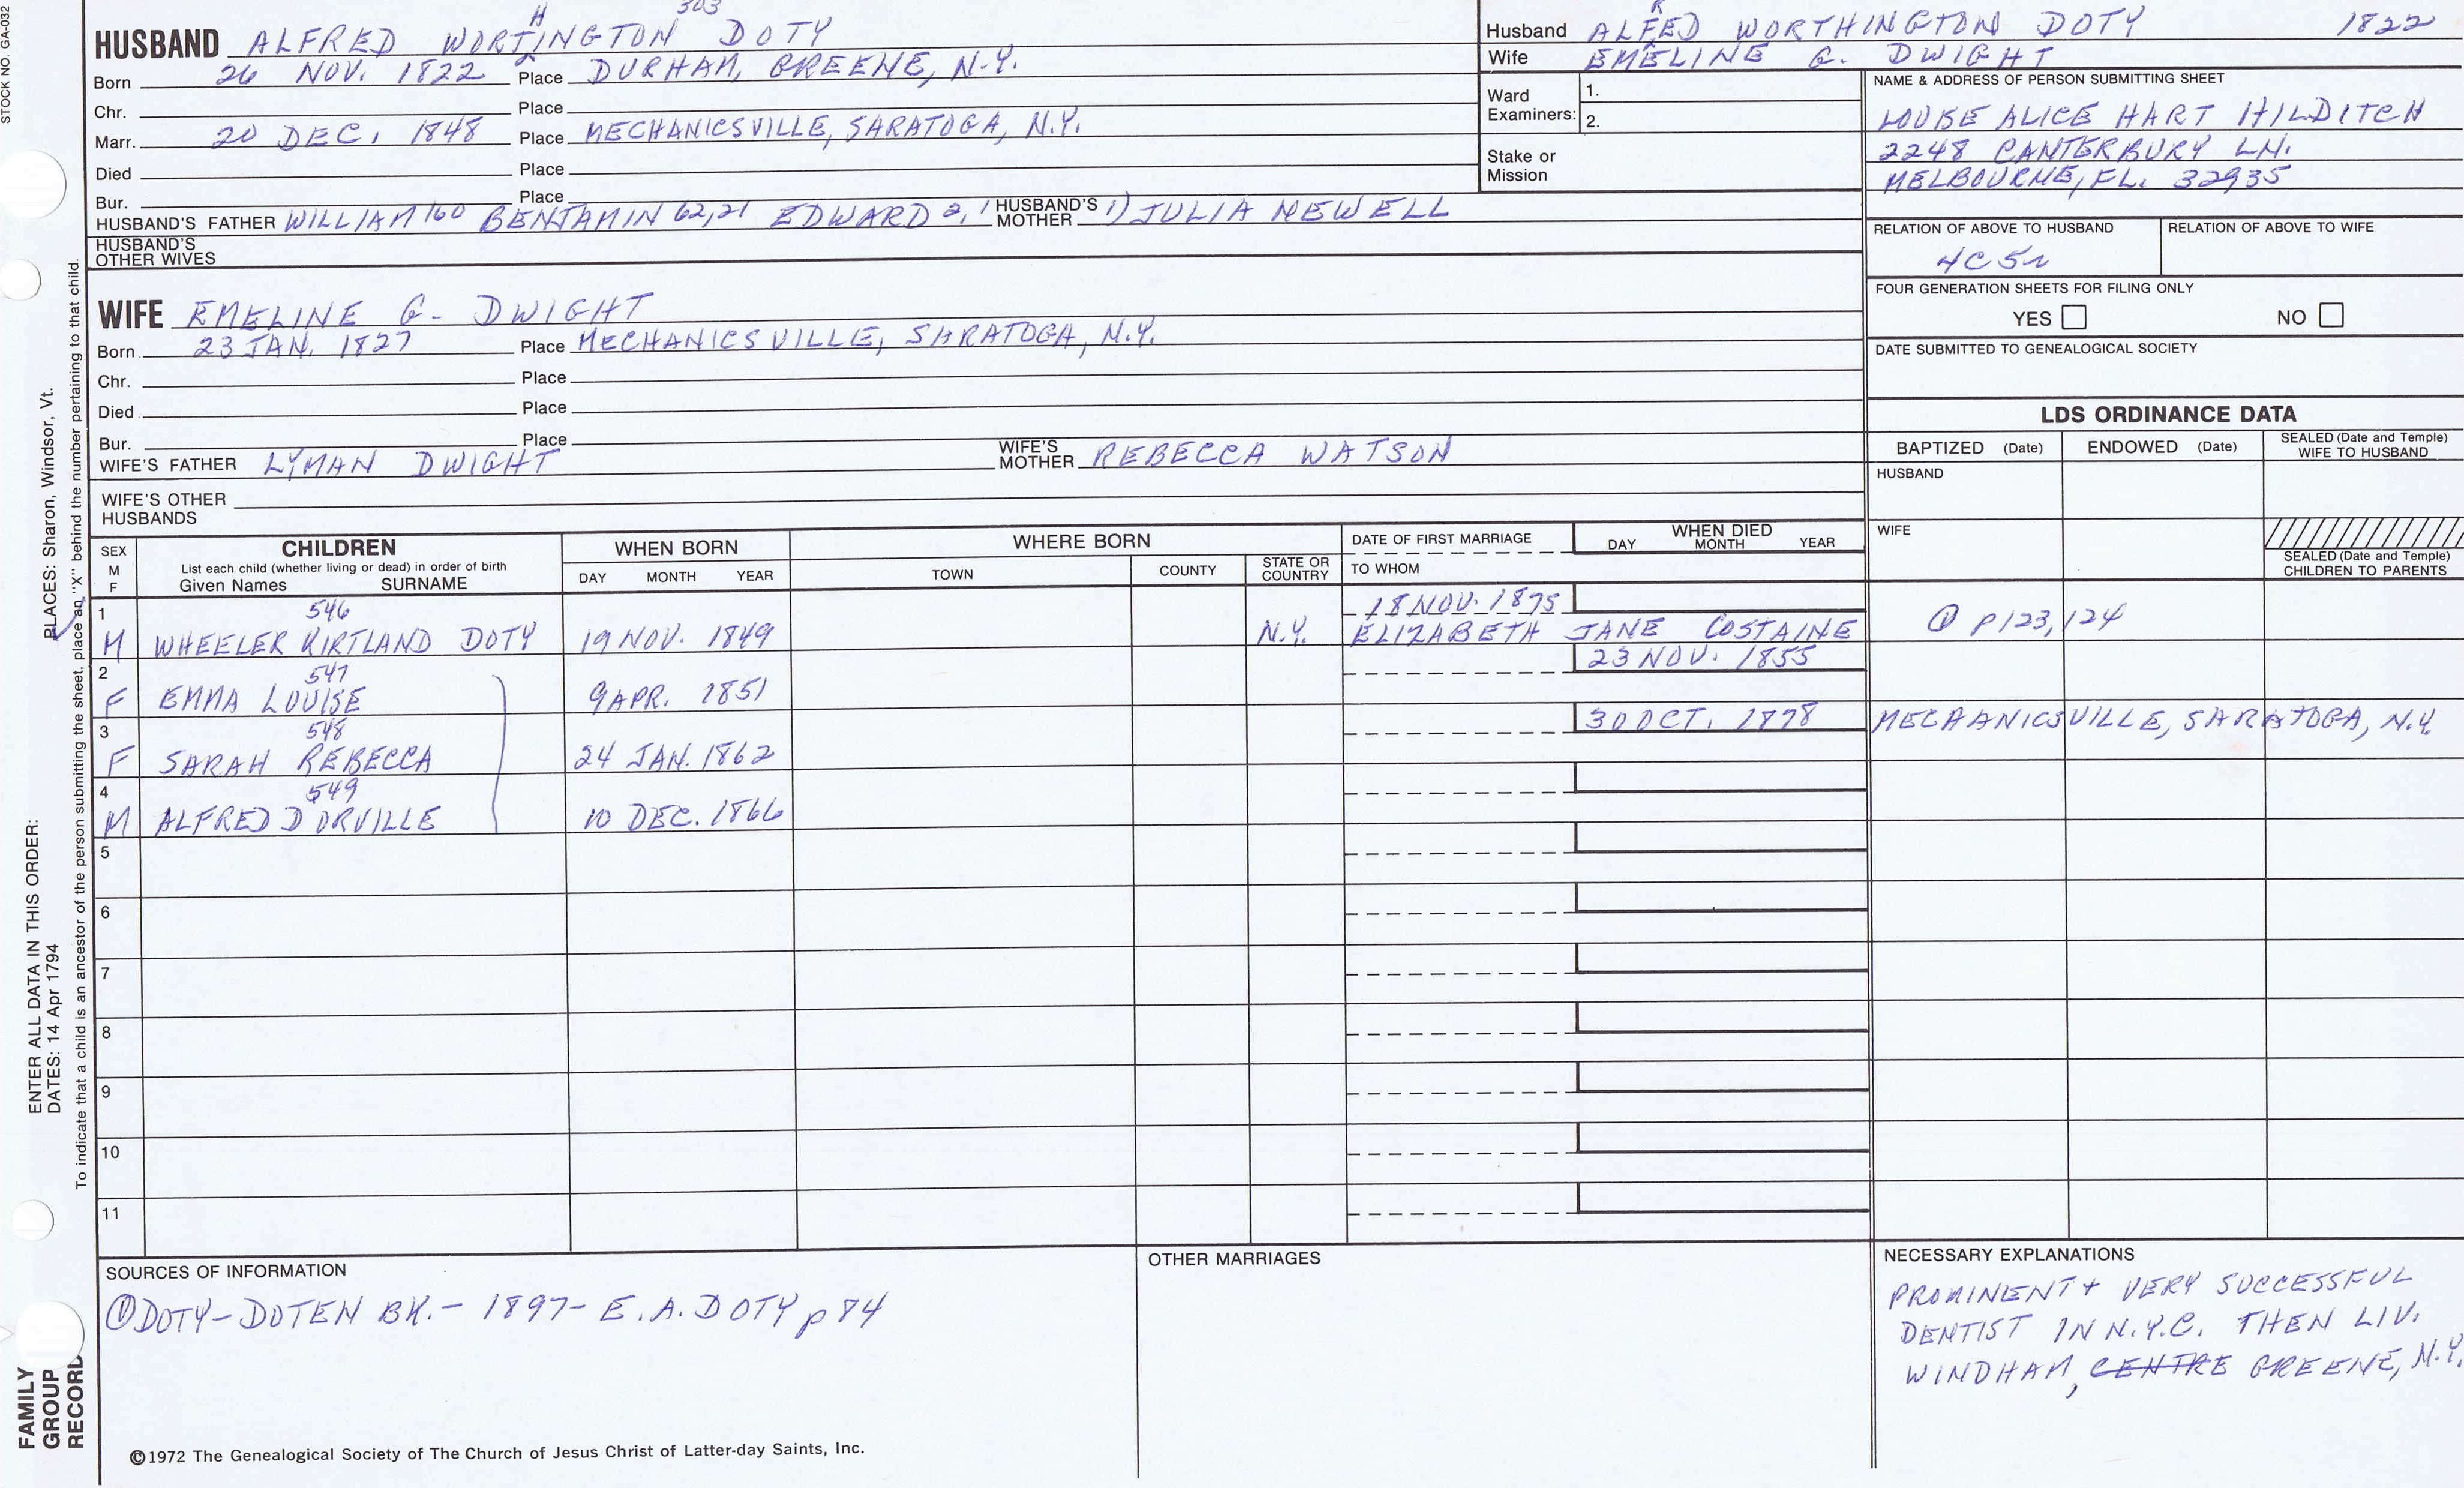 STOCK NO. GA-032
303
H
HUSBAND ALFRED WORTINGTON DOTY
Born 26 NOV. 1822 Place DURHAM, GREENE, N.Y.
Chr. Place
Marr. 20 DEC. 1848 Place MECHANICSVILLE, SARATOGA, N.Y.
Died Place
Bur. Place
HUSBAND'S FATHER WILLIAM 160 BENJAMIN 62,21 EDWARD 2,1 HUSBAND'S MOTHER 1) JULIA NEWELL
HUSBAND'S OTHER WIVES
R
Husband ALFED WORTHINGTON DOTY 1822
Wife EMELINE G. DWIGHT
Ward Examiners: 1.
2.
Stake or Mission
NAME & ADDRESS OF PERSON SUBMITTING SHEET
LOUISE ALICE HART HILDITCH
2248 CANTERBURY LN.
MELBOURNE, FL. 32935
RELATION OF ABOVE TO HUSBAND RELATION OF ABOVE TO WIFE
4C5r
FOUR GENERATION SHEETS FOR FILING ONLY
YES NO
DATE SUBMITTED TO GENEALOGICAL SOCIETY
WIFE EMELINE G. DWIGHT
Born 23 JAN. 1827 Place MECHANICSVILLE, SARATOGA, N.Y.
Chr. Place
Died Place
Bur. Place
WIFE'S FATHER LYMAN DWIGHT WIFE'S MOTHER REBECCA WATSON
WIFE'S OTHER HUSBANDS
LDS ORDINANCE DATA
BAPTIZED (Date) ENDOWED (Date) SEALED (Date and Temple) WIFE TO HUSBAND
HUSBAND
WIFE
SEALED (Date and Temple) CHILDREN TO PARENTS
SEX M F
CHILDREN
List each child (whether living or dead) in order of birth
Given Names SURNAME
WHEN BORN
DAY MONTH YEAR
WHERE BORN
TOWN COUNTY STATE OR COUNTRY
DATE OF FIRST MARRIAGE
TO WHOM
WHEN DIED
DAY MONTH YEAR
1 546 18 NOV. 1875
M WHEELER KIRTLAND DOTY 19 NOV. 1849 N.Y. ELIZABETH JANE COSTAINE ① P123,124
2 547 23 NOV. 1855
F EMMA LOUISE 9 APR. 1851
3 548 30 OCT. 1878 MECHANICSVILLE, SARATOGA, N.Y.
F SARAH REBECCA 24 JAN. 1862
4 549
M ALFRED DORVILLE 10 DEC. 1866
5
6
7
8
9
10
11
SOURCES OF INFORMATION
① DOTY-DOTEN BK. - 1897 - E. A. DOTY p 84
OTHER MARRIAGES
NECESSARY EXPLANATIONS
PROMINENT + VERY SUCCESSFUL
DENTIST IN N.Y.C. THEN LIV.
WINDHAM, CENTRE GREENE, N.Y.
©1972 The Genealogical Society of The Church of Jesus Christ of Latter-day Saints, Inc.
FAMILY
GROUP
RECORD
ENTER ALL DATA IN THIS ORDER:
DATES: 14 Apr 1794
PLACES: Sharon, Windsor, Vt.
To indicate that a child is an ancestor of the person submitting the sheet, place an "X" behind the number pertaining to that child.